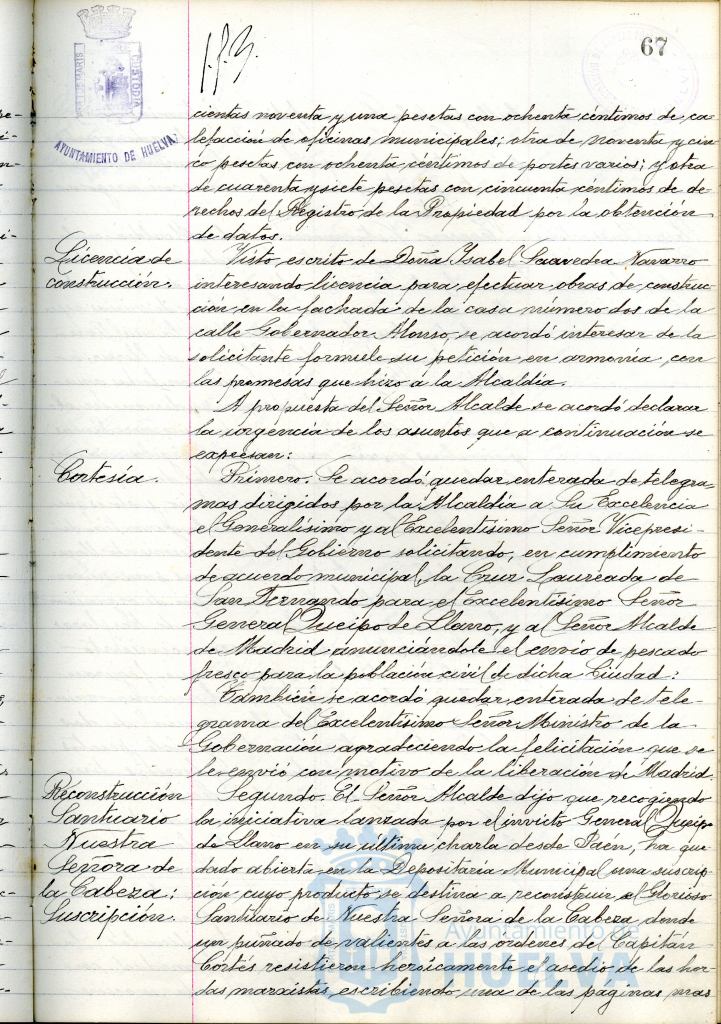 67
AYUNTAMIENTO DE HUELVA
CUSTODIA
cientas noventa y una pesetas con ochenta céntimos de ca-
lefacción de oficinas municipales; otra de noventa y cin-
co pesetas con ochenta céntimos de portes varios; y otra
de cuarenta y siete pesetas con cincuenta céntimos de de-
rechos del Registro de la Propiedad por la obtención
de datos.
Licencia de
construcción.
Visto escrito de Doña Isabel Saavedra Navarro
interesando licencia para efectuar obras de construc-
ción en la fachada de la casa número dos de la
calle Gobernador Alonso, se acordó interesar de la
solicitante formule su petición en armonía con
las promesas que hizo a la Alcaldía.
A propuesta del Señor Alcalde se acordó declarar
la urgencia de los asuntos que a continuación se
expresan:
Cortesía.
Primero. Se acordó quedar enterada de telegra-
mas dirigidos por la Alcaldía a Su Excelencia
el Generalísimo y al Excelentísimo Señor Vicepresi-
dente del Gobierno solicitando, en cumplimiento
de acuerdo municipal, la Cruz Laureada de
San Fernando para el Excelentísimo Señor
General Queipo de Llano, y al Señor Alcalde
de Madrid anunciándole el envío de pescado
fresco para la población civil de dicha Ciudad:
También se acordó quedar enterada de tele-
grama del Excelentísimo Señor Ministro de la
Gobernación agradeciendo la felicitación que se
le envió con motivo de la liberación de Madrid.
Reconstrucción
Santuario
Nuestra
Señora de
la Cabeza:
Suscripción.
Segundo. El Señor Alcalde dijo que recogiendo
la iniciativa lanzada por el invicto General Queipo
de Llano en su última charla desde Jaén, ha que-
dado abierta en la Depositaría Municipal una suscrip-
ción cuyo producto se destina a reconstruir el Glorioso
Santuario de Nuestra Señora de la Cabeza, donde
un puñado de valientes a las órdenes del Capitán
Cortés resistieron heróicamente el asedio de las hor-
das marxistas, escribiendo una de las páginas mas
Ayuntamiento de
HUELVA